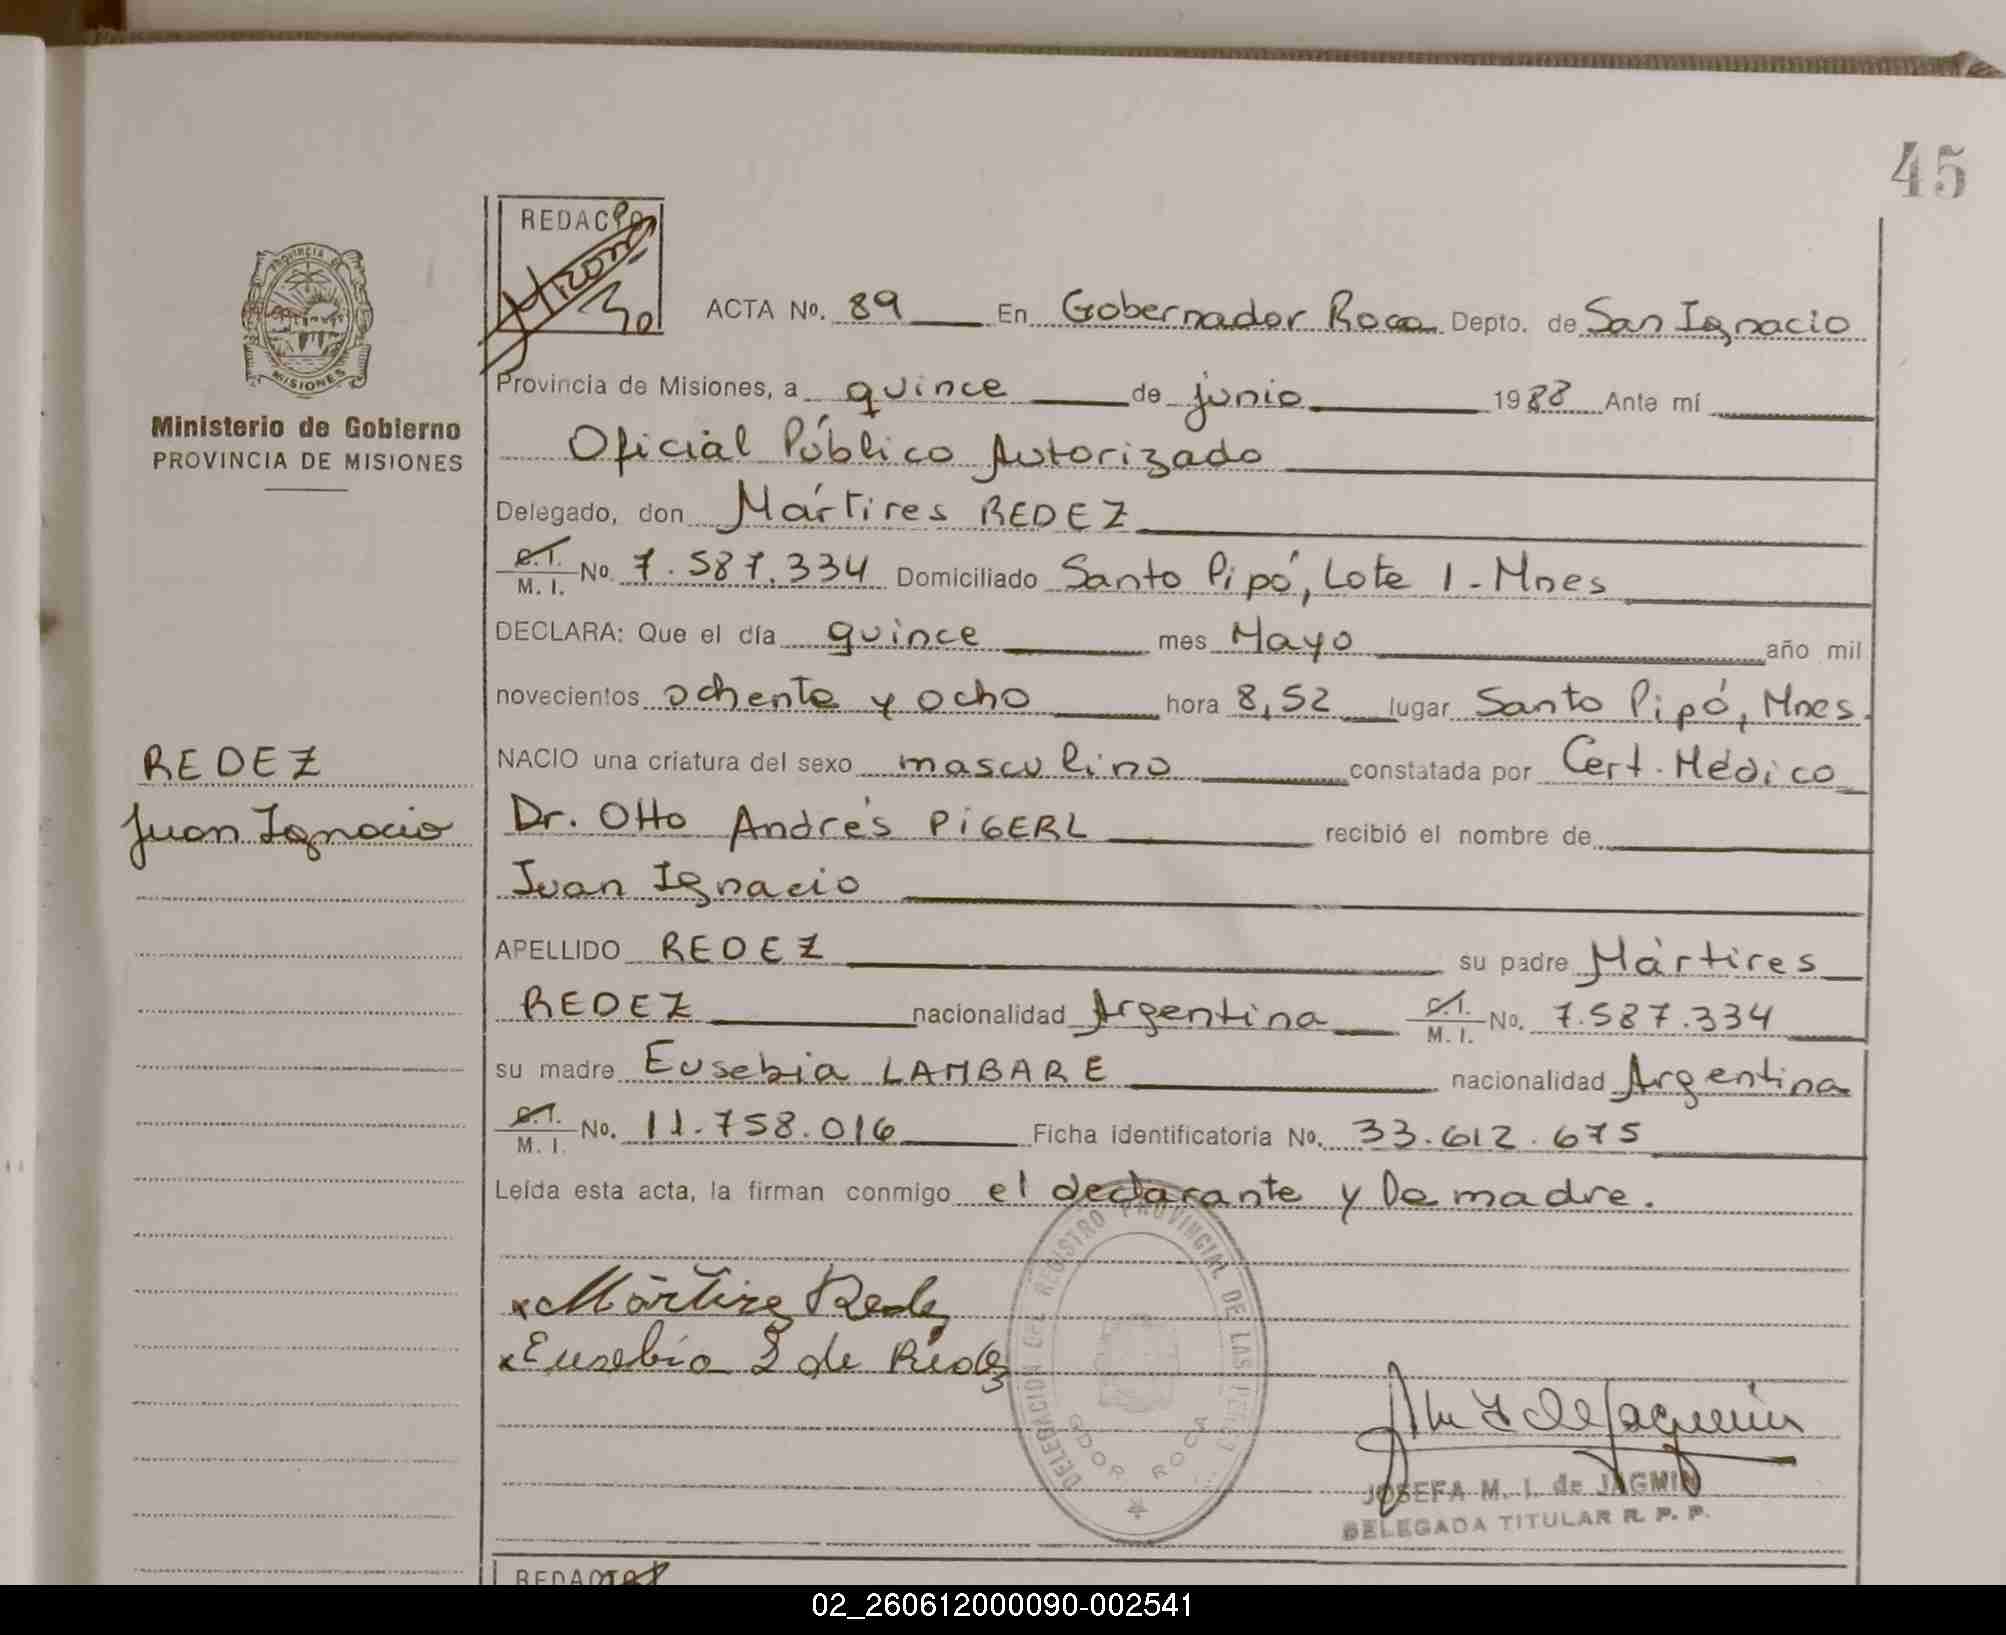 45
REDAC
ACTA No. 89 En Gobernador Roca Depto. de San Ignacio
PROVINCIA DE
MISIONES
Provincia de Misiones, a quince de junio 1988 Ante mí
Ministerio de Gobierno
PROVINCIA DE MISIONES
Oficial Público Autorizado
Delegado, don Mártires REDEZ
C.I.
M. I. No. 7.587.334 Domiciliado Santo Pipó, Lote 1 - Mnes
DECLARA: Que el día quince mes Mayo año mil
novecientos ochenta y ocho hora 8,52 lugar Santo Pipó, Mnes.
REDEZ
NACIO una criatura del sexo masculino constatada por Cert. Médico
Juan Ignacio
Dr. Otto Andrés PIGERL recibió el nombre de
Juan Ignacio
APELLIDO REDEZ su padre Mártires
REDEZ nacionalidad Argentina C.I. M. I. No. 7.587.334
su madre Eusebia LAMBARE nacionalidad Argentina
C.I.
M. I. No. 11.758.016 Ficha identificatoria No. 33.612.675
Leída esta acta, la firman conmigo el declarante y la madre.
x Mártires Redez
x Eusebia L de Redez
DELEGACION DEL REGISTRO PROVINCIAL DE LAS
GDOR ROCA
JOSEFA M. I. de JAGMIN
DELEGADA TITULAR R. P. P.
02_260612000090-002541